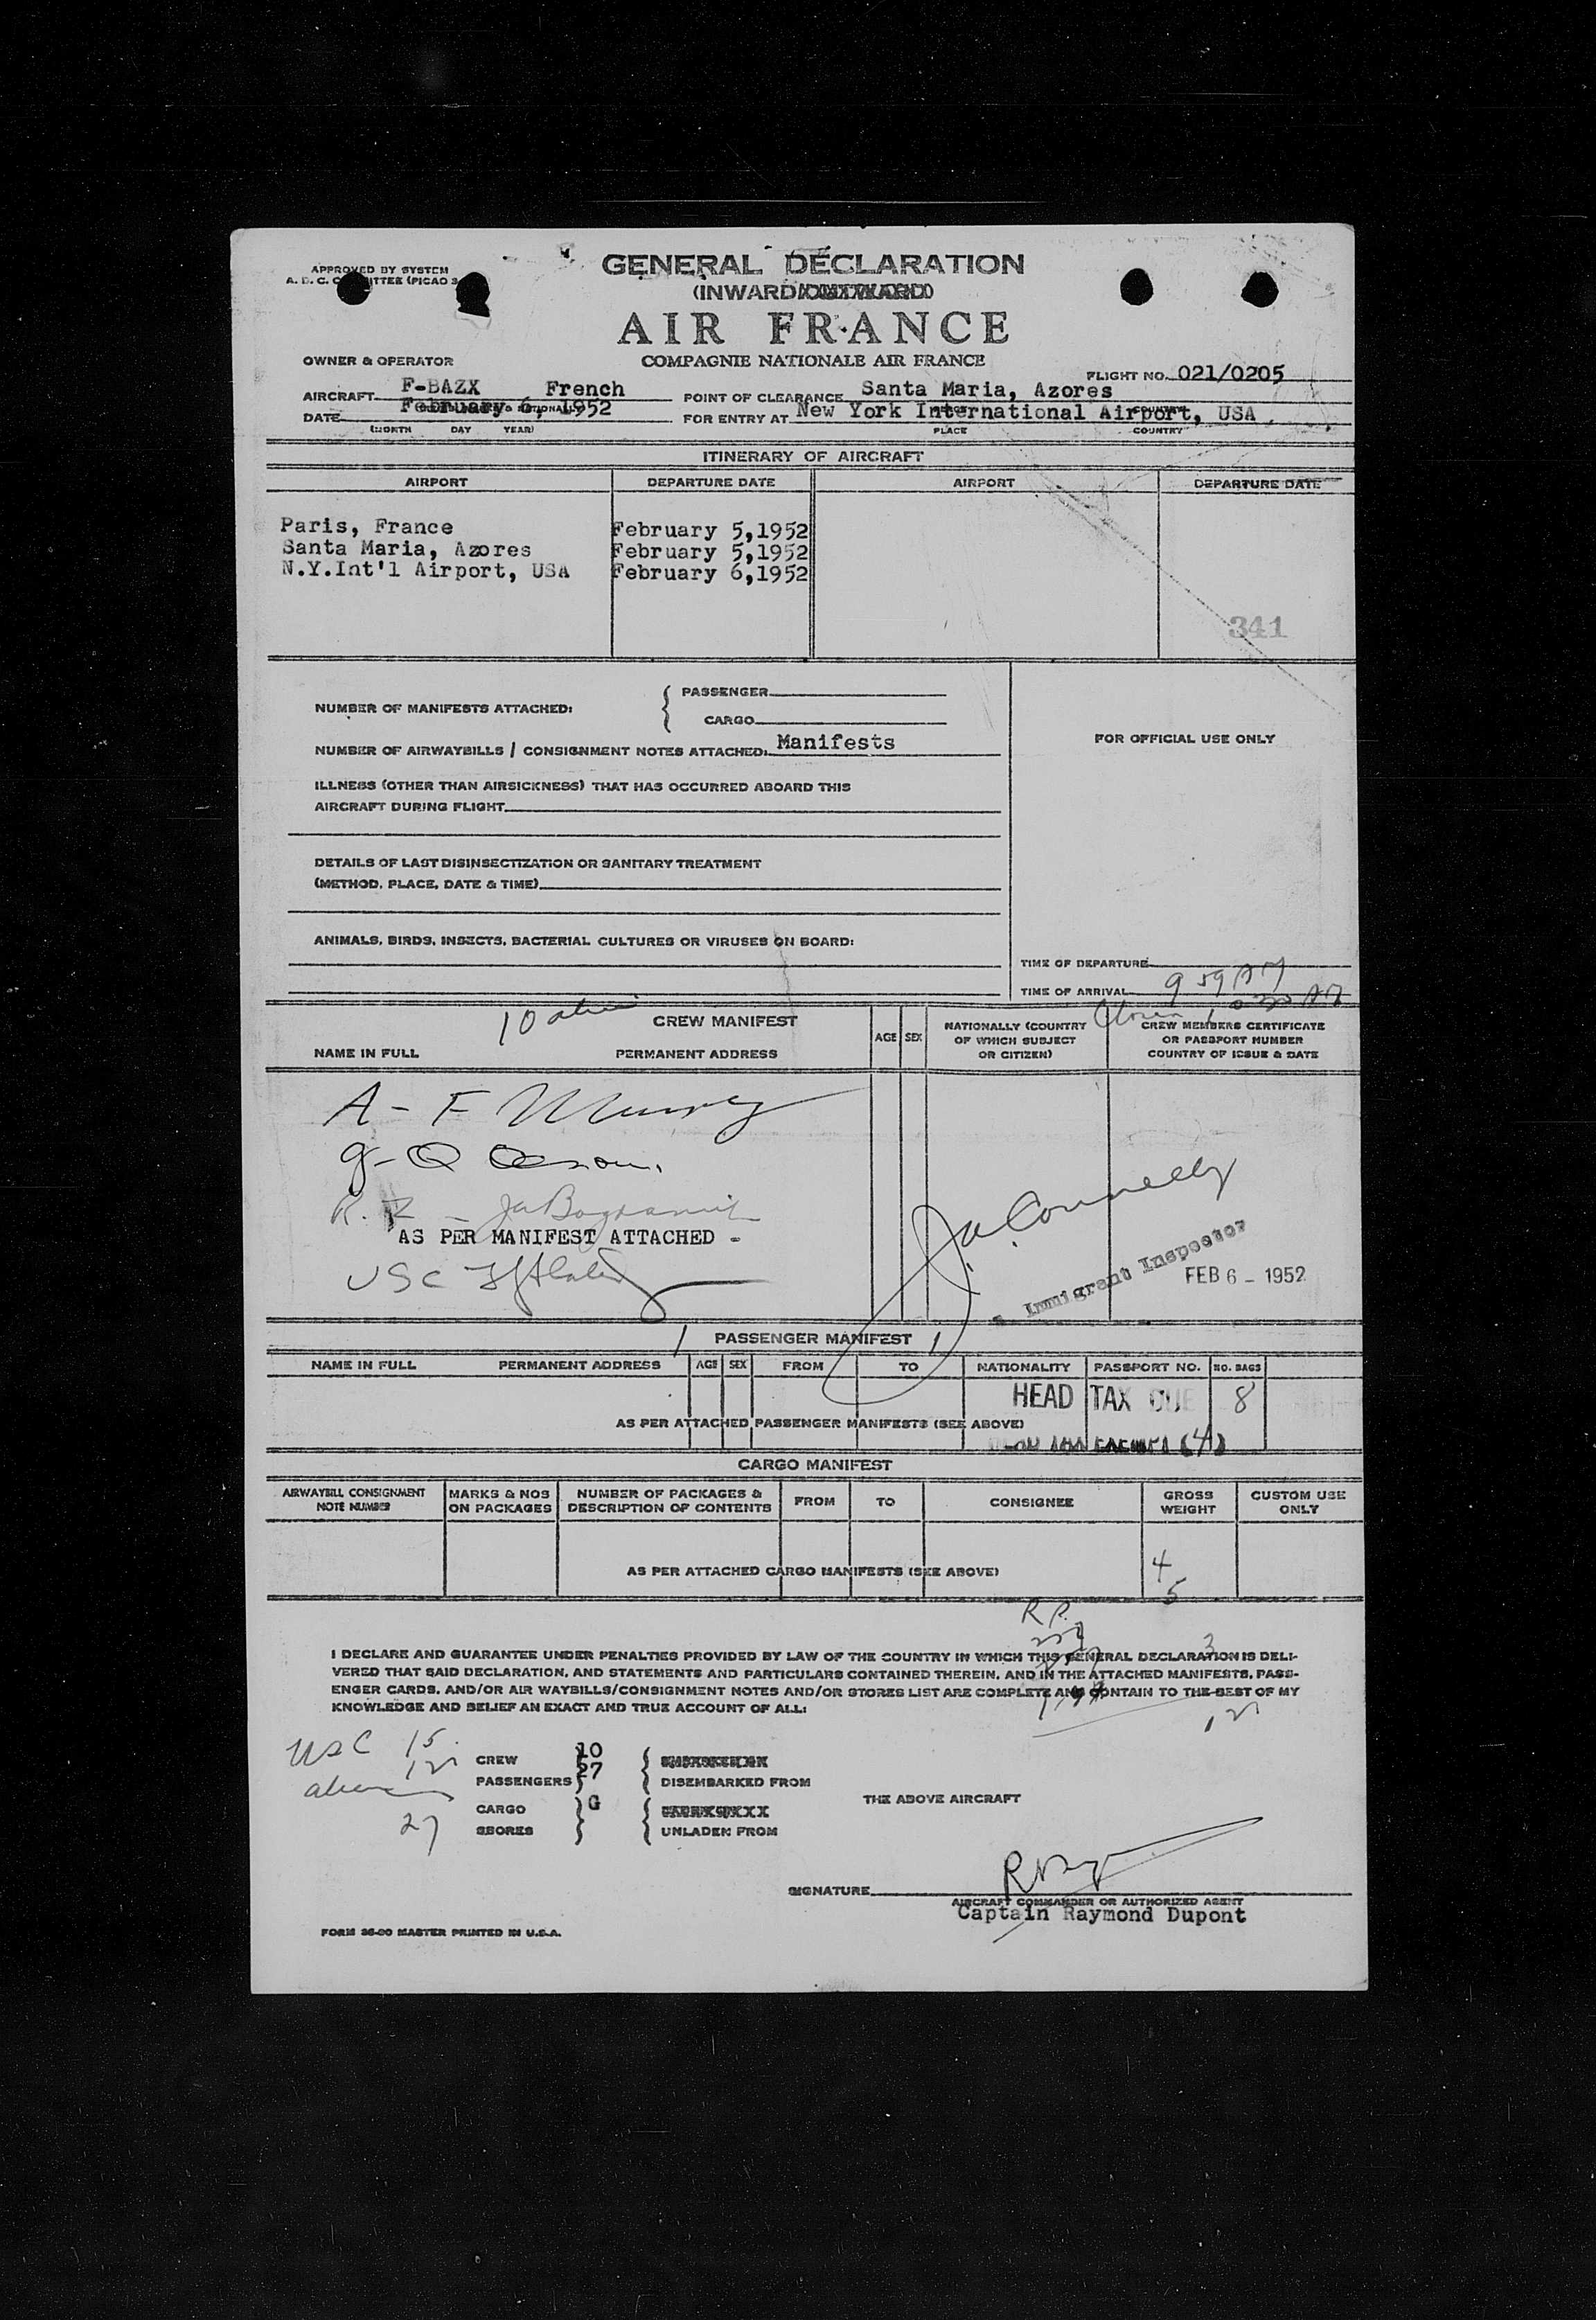 GENERAL DECLARATION
APPROVED BY SYSTEM
(INWARD
AIR FRANCE
COMPAGNIE NATIONALE AIR FRANCE
OWNER & OPERATOR
FLIGHT NO. 021/0205
AIRCRAFT F-BAZX French
POINT OF CLEARANCE Santa Maria, Azores
DATE February 6, 1952
FOR ENTRY AT New York International Airport, USA
(MONTH DAY YEAR)
PLACE COUNTRY
ITINERARY OF AIRCRAFT
AIRPORT DEPARTURE DATE AIRPORT DEPARTURE DATE
Paris, France February 5,1952
Santa Maria, Azores February 5,1952
N.Y.Int'l Airport, USA February 6,1952
341
NUMBER OF MANIFESTS ATTACHED:
PASSENGER
CARGO
NUMBER OF AIRWAYBILLS / CONSIGNMENT NOTES ATTACHED: Manifests
FOR OFFICIAL USE ONLY
ILLNESS (OTHER THAN AIRSICKNESS) THAT HAS OCCURRED ABOARD THIS
AIRCRAFT DURING FLIGHT
DETAILS OF LAST DISINSECTIZATION OR SANITARY TREATMENT
(METHOD, PLACE, DATE & TIME)
ANIMALS, BIRDS, INSECTS, BACTERIAL CULTURES OR VIRUSES ON BOARD:
TIME OF DEPARTURE
TIME OF ARRIVAL 9 59 AM
10
CREW MANIFEST
NAME IN FULL PERMANENT ADDRESS
AGE SEX
NATIONALLY (COUNTRY
OF WHICH SUBJECT
OR CITIZEN)
CREW MEMBERS CERTIFICATE
OR PASSPORT NUMBER
COUNTRY OF ISSUE & DATE
A - F
AS PER MANIFEST ATTACHED -
USC
Connelly
Immigrant Inspector
FEB 6 - 1952
PASSENGER MANIFEST
NAME IN FULL PERMANENT ADDRESS AGE SEX FROM TO NATIONALITY PASSPORT NO. NO. BAGS
HEAD TAX DUE 8
AS PER ATTACHED PASSENGER MANIFESTS (SEE ABOVE)
(4)
CARGO MANIFEST
AIRWAYBILL CONSIGNMENT
NOTE NUMBER
MARKS & NOS
ON PACKAGES
NUMBER OF PACKAGES &
DESCRIPTION OF CONTENTS
FROM TO CONSIGNEE
GROSS
WEIGHT
CUSTOM USE
ONLY
AS PER ATTACHED CARGO MANIFESTS (SEE ABOVE)
4
5
R P.
3
I DECLARE AND GUARANTEE UNDER PENALTIES PROVIDED BY LAW OF THE COUNTRY IN WHICH THIS GENERAL DECLARATION IS DELI-
VERED THAT SAID DECLARATION, AND STATEMENTS AND PARTICULARS CONTAINED THEREIN, AND IN THE ATTACHED MANIFESTS, PASS-
ENGER CARDS, AND/OR AIR WAYBILLS/CONSIGNMENT NOTES AND/OR STORES LIST ARE COMPLETE AND CONTAIN TO THE BEST OF MY
KNOWLEDGE AND BELIEF AN EXACT AND TRUE ACCOUNT OF ALL:
USC 15
12
27
CREW 10
PASSENGERS 27
DISEMBARKED FROM
CARGO
THE ABOVE AIRCRAFT
UNLADEN FROM
SIGNATURE
AIRCRAFT COMMANDER OR AUTHORIZED AGENT
Captain Raymond Dupont
FORM 86-00 MASTER PRINTED IN U.S.A.